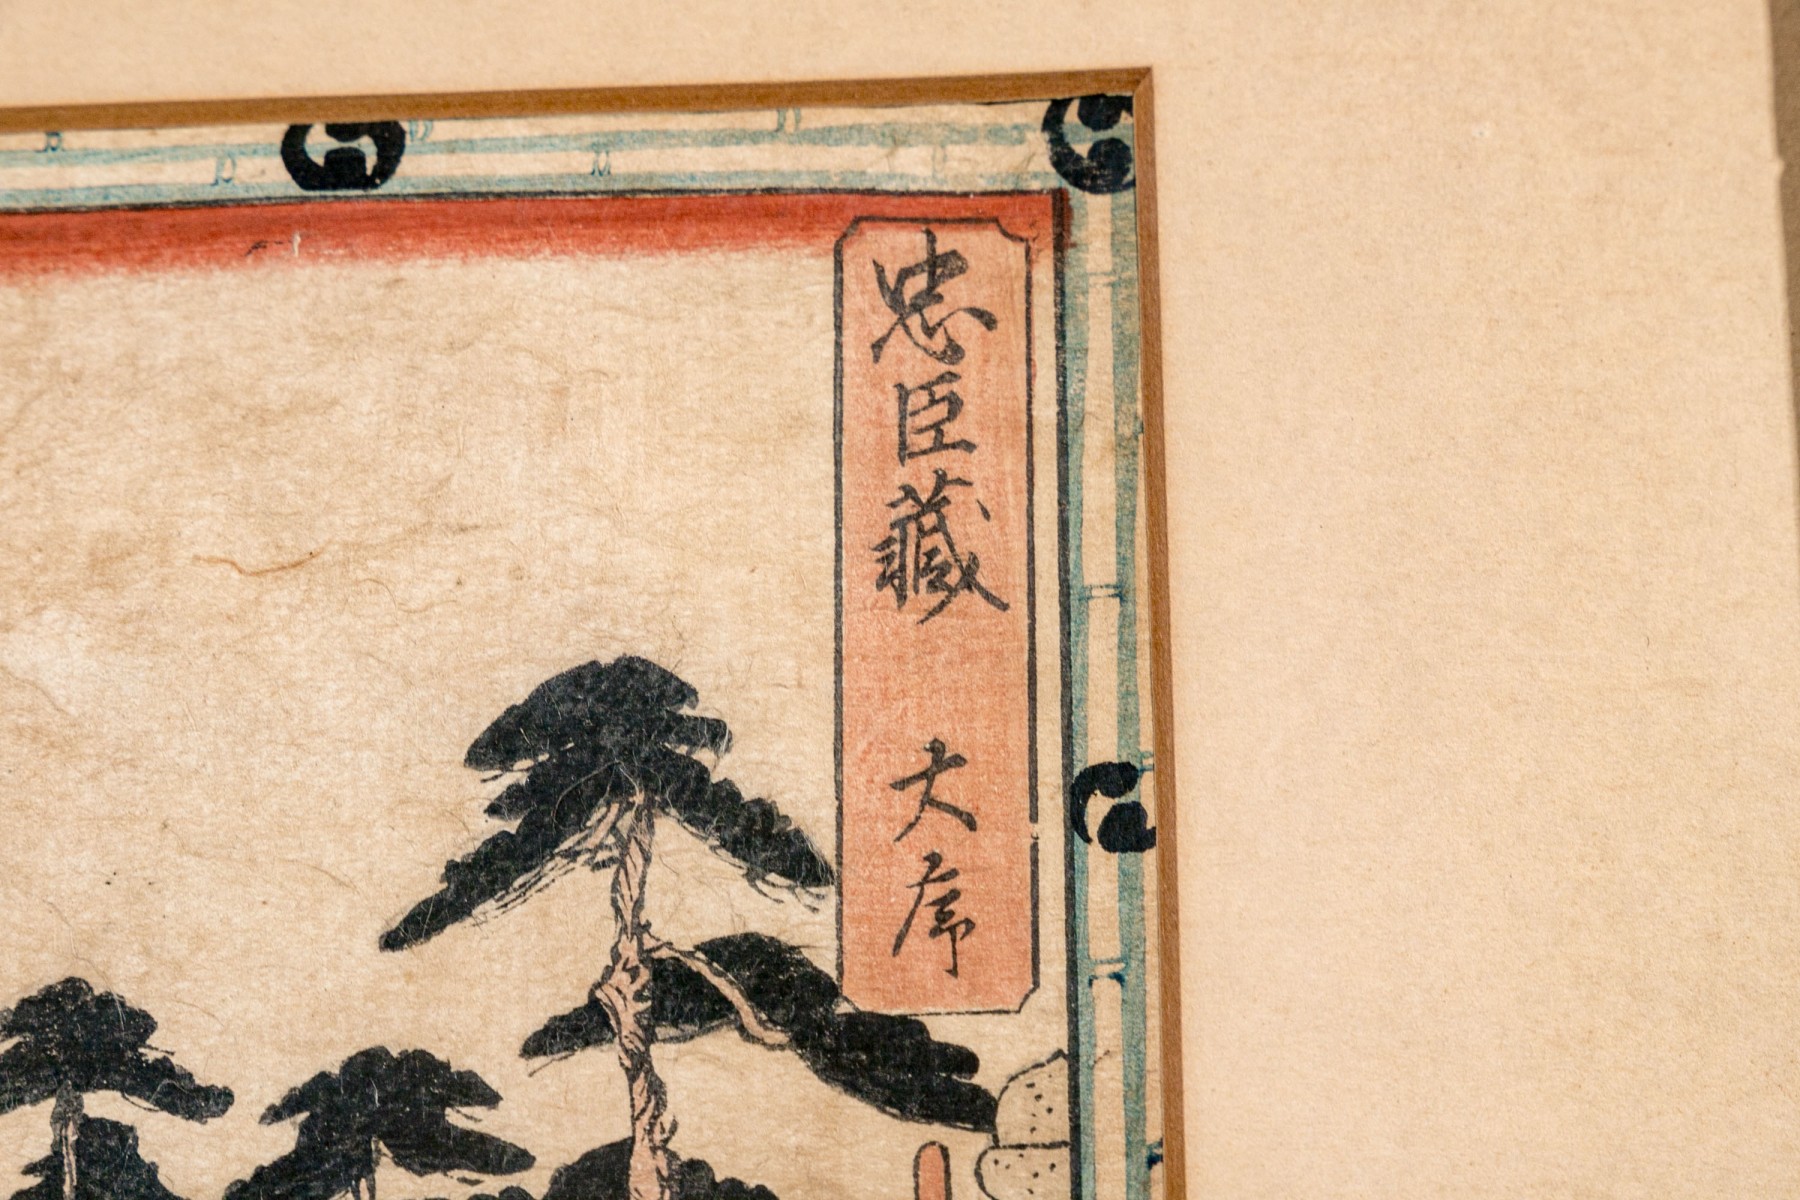 忠臣藏 大序